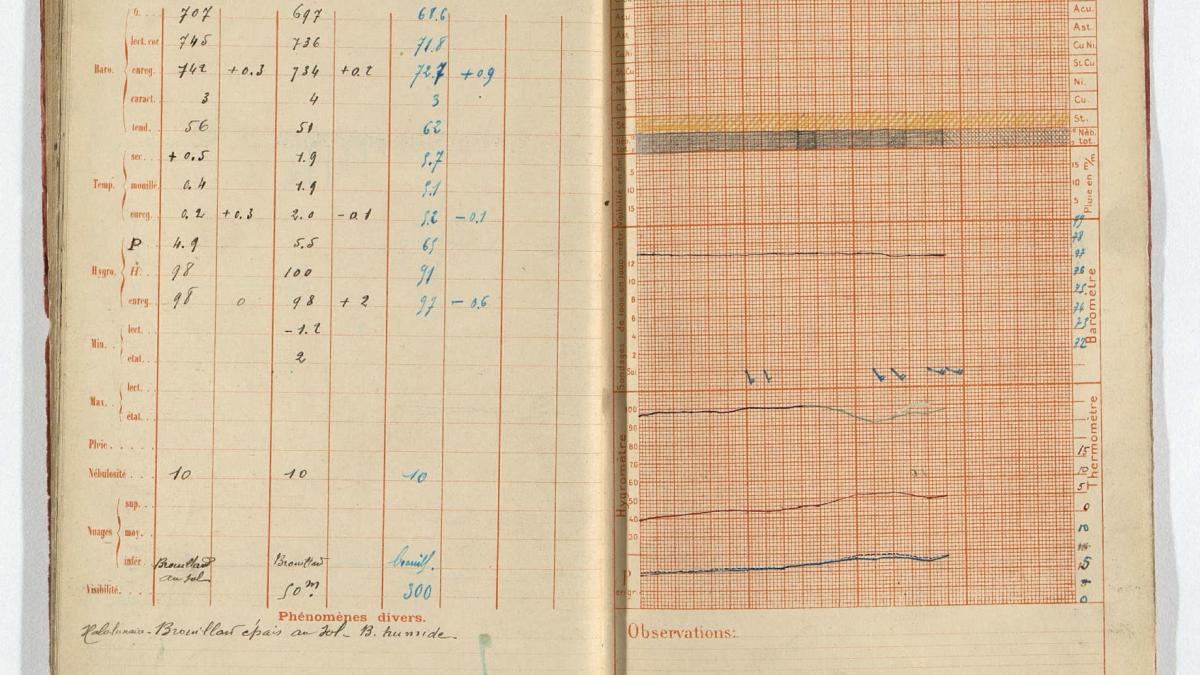 o. 707 697 68.6
lect. cor 745 736 71.8
Baro. enreg. 742 +0.3 734 +0.2 72.7 +0.9
caract. 3 4 3
tend. 56 51 62
sec. . . +0.5 1.9 5.7
Temp. mouillé. 0.4 1.9 5.1
enreg. . 0.2 +0.3 2.0 -0.1 5.2 -0.1
P 4.9 5.5 65
Hygro. H. . . 98 100 91
enreg. . 98 0 98 +2 97 -0.6
lect. . . -1.2
Min. . état. . . 2
lect. . .
Max. . état. . .
Pluie. . . . .
Nébulosité . . 10 10 10
sup. . .
Nuages moy. . .
infér. . Brouillard au sol Brouillard brouill.
Visibilité. . . 50m. 300
Phénomènes divers.
Brouillard épais au sol - B. humide.
Acu. Acu.
Ast. Ast.
Cu Ni. Cu Ni.
St. Cu St. Cu
Ni. Ni.
Cu. Cu.
St. St.
Néb. tot. Néb. tot.
15
10 10
5 5
15
Pluie en m/m
79
78
12 77
10 76
8 75
6 74
4 73
2 72
Sol
Baromètre
100
90
80
70 15
60 10
50 5
40 0
30 10
5
0
Hygromètre
Thermomètre
P
Observations: